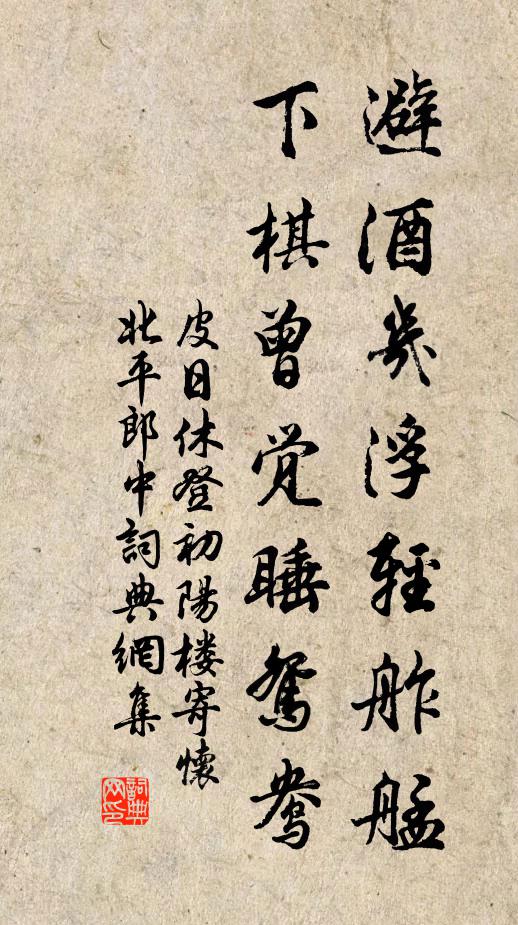 避酒幾浮輕舴艋
下棋曾觉睡鴛鴦
皮日休登初陽楼寄懷
北平郎中詞典網集
詞典网印